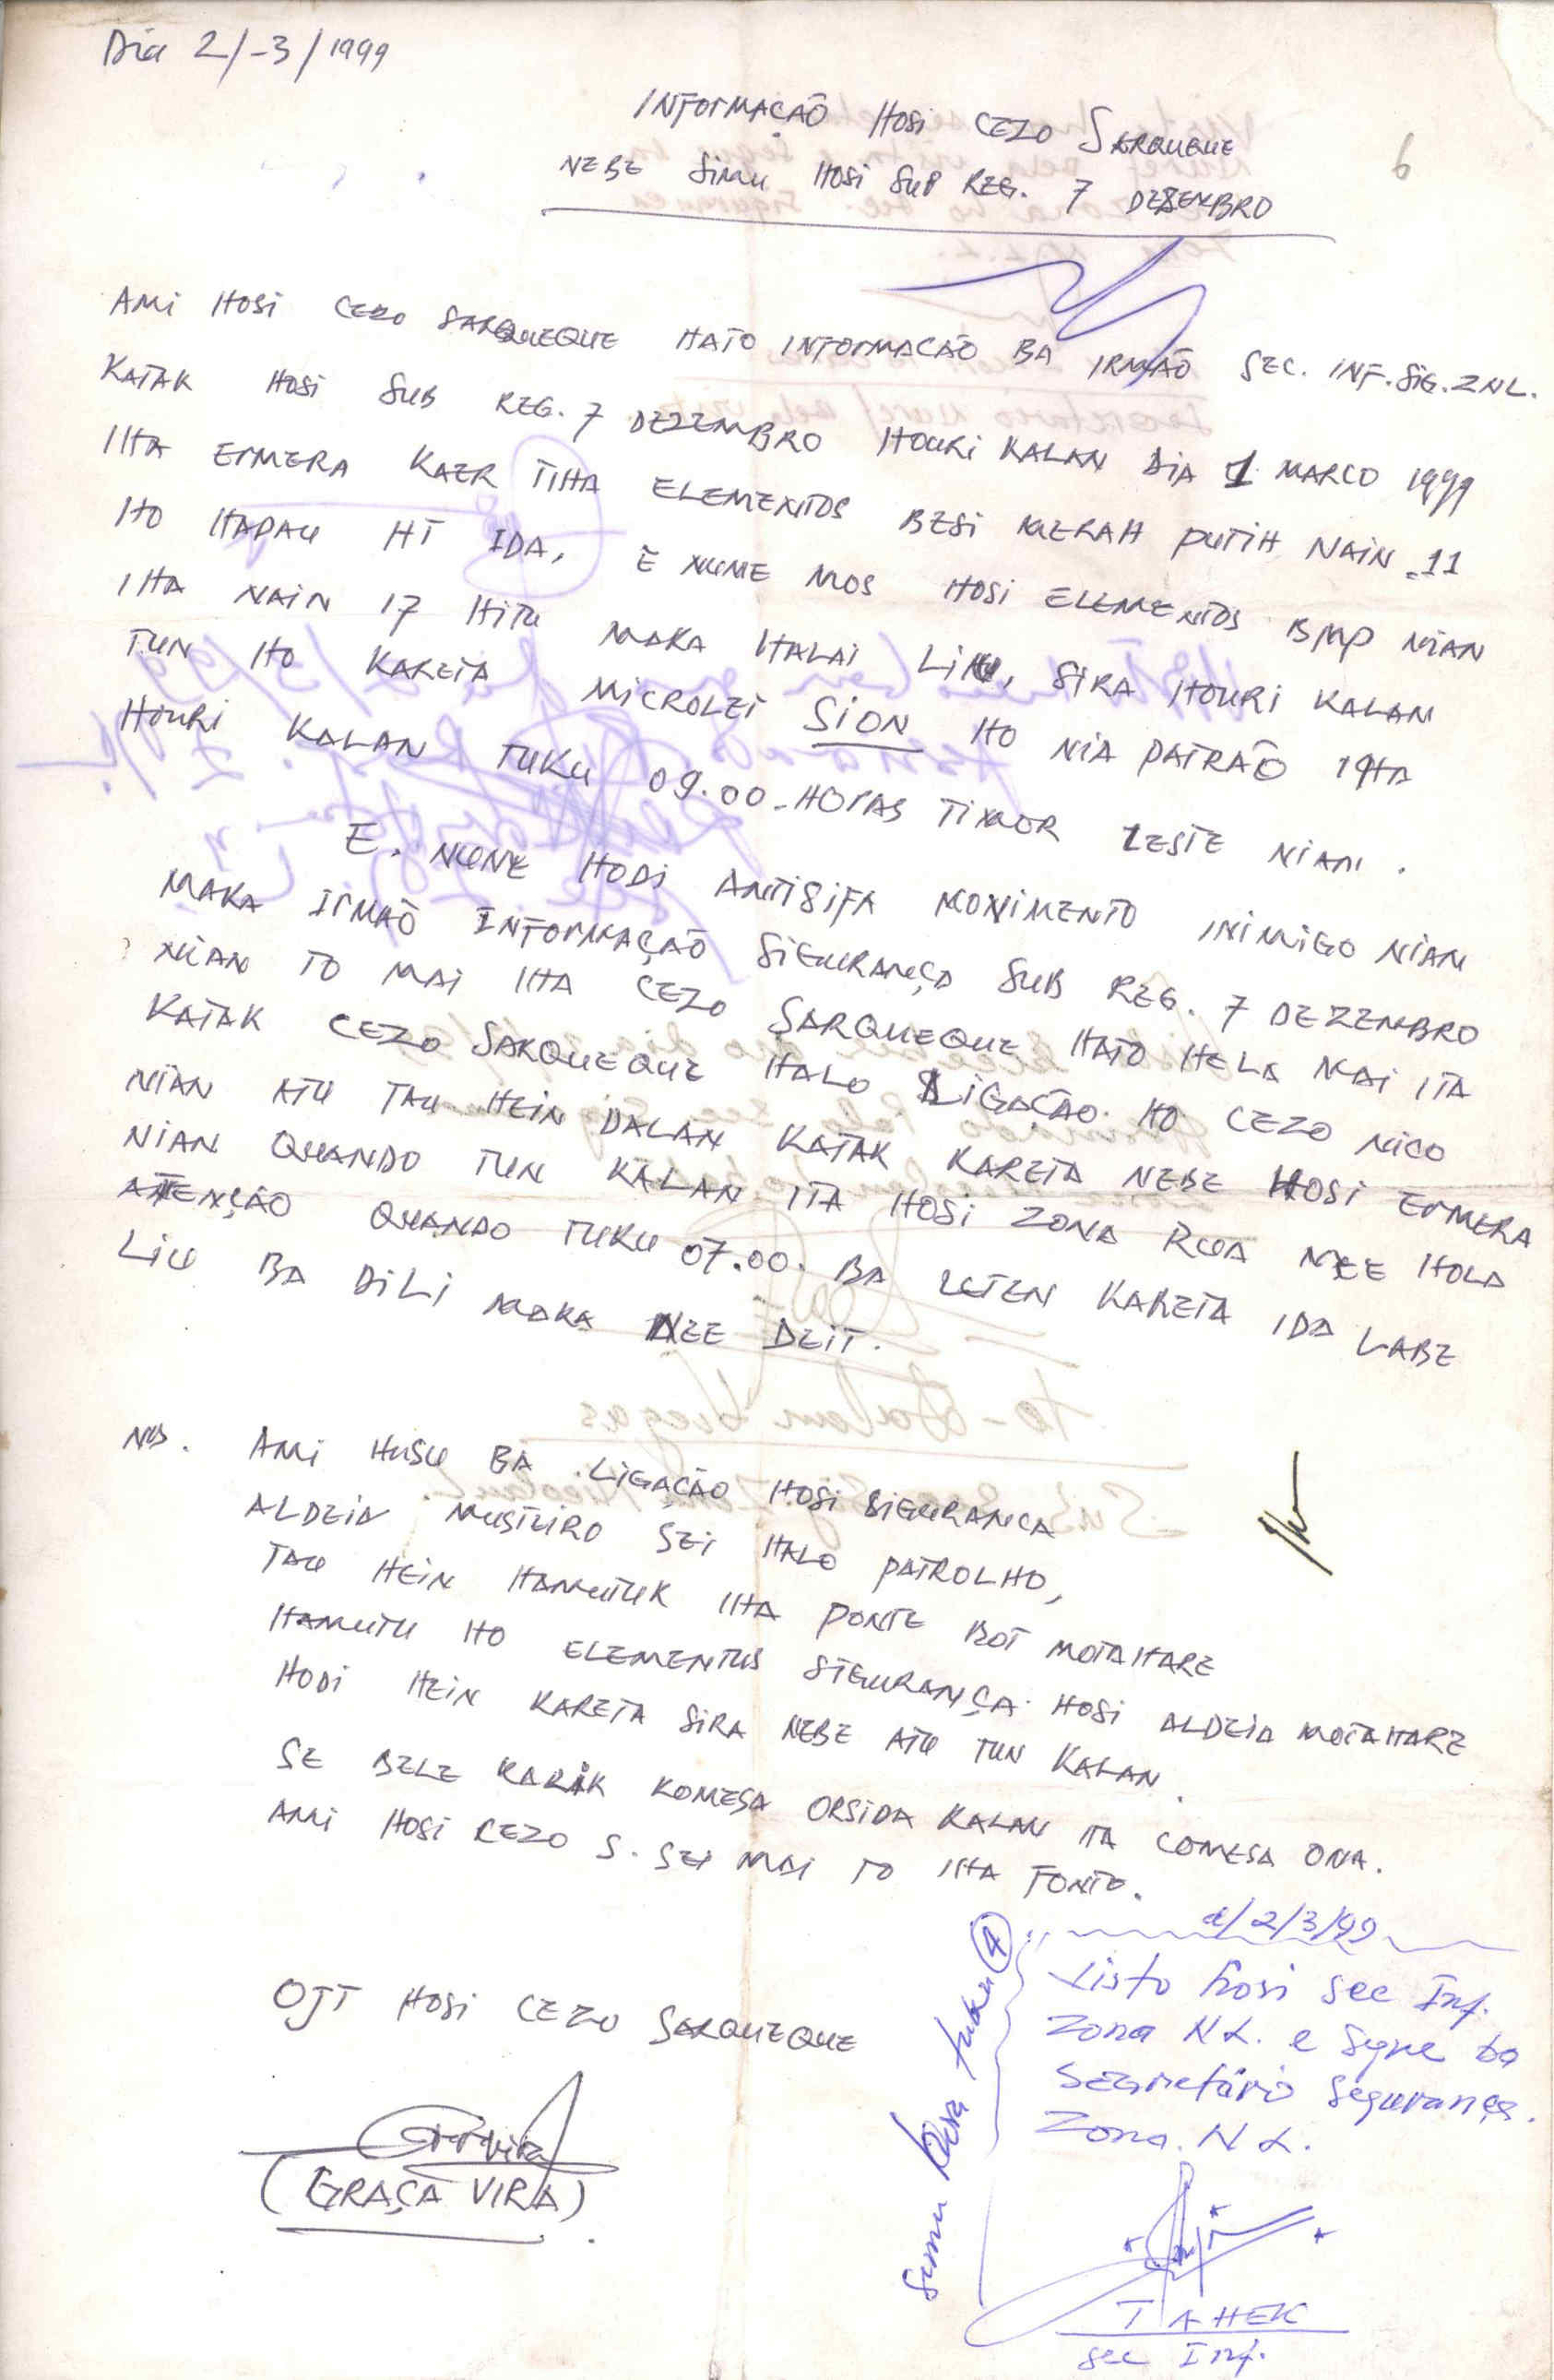 Dia 2/-3/1999
INFORMAÇÃO HOSI CEZO SARQUEQUE
NEBE SIMU HOSI SUB REG. 7 DEZEMBRO
6
AMI HOSI CEZO SARQUEQUE HATO INFORMACÃO BA IRMÃO SEC. INF. SIG. ZNL.
KATAK HOSI SUB REG. 7 DEZEMBRO HOURI KALAN DIA 1 MARCO 1999
IHA ERMERA KAER TIHA ELEMENTOS BESI MERAH PUTIH NAIN 11
HO HAPAU HT IDA, E NUNE MOS HOSI ELEMENTOS BMP NIAN
IHA NAIN 17 HITU MAKA HALAI LIU, SIRA HOURI KALAN
TUN HO KARETA MICROLET SION HO NIA PATRÃO IHA
HOURI KALAN TUKU 09.00-HORAS TIMOR LESTE NIAN.
E. NUNE HODI ANTISIFA MOVIMENTO INIMIGO NIAN
MAKA IRMÃO INFORMAÇÃO SIGURANÇA SUB REG. 7 DEZEMBRO
NIAN TO MAI IHA CEZO SARQUEQUE HATO HELA MAI ITA
KATAK CEZO SARQUEQUE HALO LIGAÇÃO HO CEZO NICO
NIAN ATU TAU HEIN DALAN KATAK KARETA NEBE HOSI ERMERA
NIAN QUANDO TUN KALAN ITA HOSI ZONA RUA NEE HOLA
ATENÇÃO QUANDO TUKU 07.00. BA LETEN KARETA IDA LABE
LIU BA DILI MAKA NEE DEIT.
NB. AMI HUSU BA LIGAÇÃO HOSI SIGURANCA
ALDEIA MUSTEIRO SEI HALO PATROLHO,
TAU HEIN HAMUTUK IHA PONTE BOT MOTAHARE
HAMUTU HO ELEMENTUS SIGURANÇA HOSI ALDEIA MOTAHARE
HODI HEIN KARETA SIRA NEBE ATU TUN KALAN.
SE BELE KARIK KOMESA ORSIDA KALAN ITA COMESA ONA.
AMI HOSI CEZO S. SEI MAI TO IHA FONTO.
OJT HOSI CEZO SARQUEQUE
(GRAÇA VIRA)
Simu tuku 4
a/2/3/99
Visto hosi Sec Inf.
Zona N L. e Sgue ba
Secretário Segurança.
Zona. N L.
TAHEK
Sec Inf.